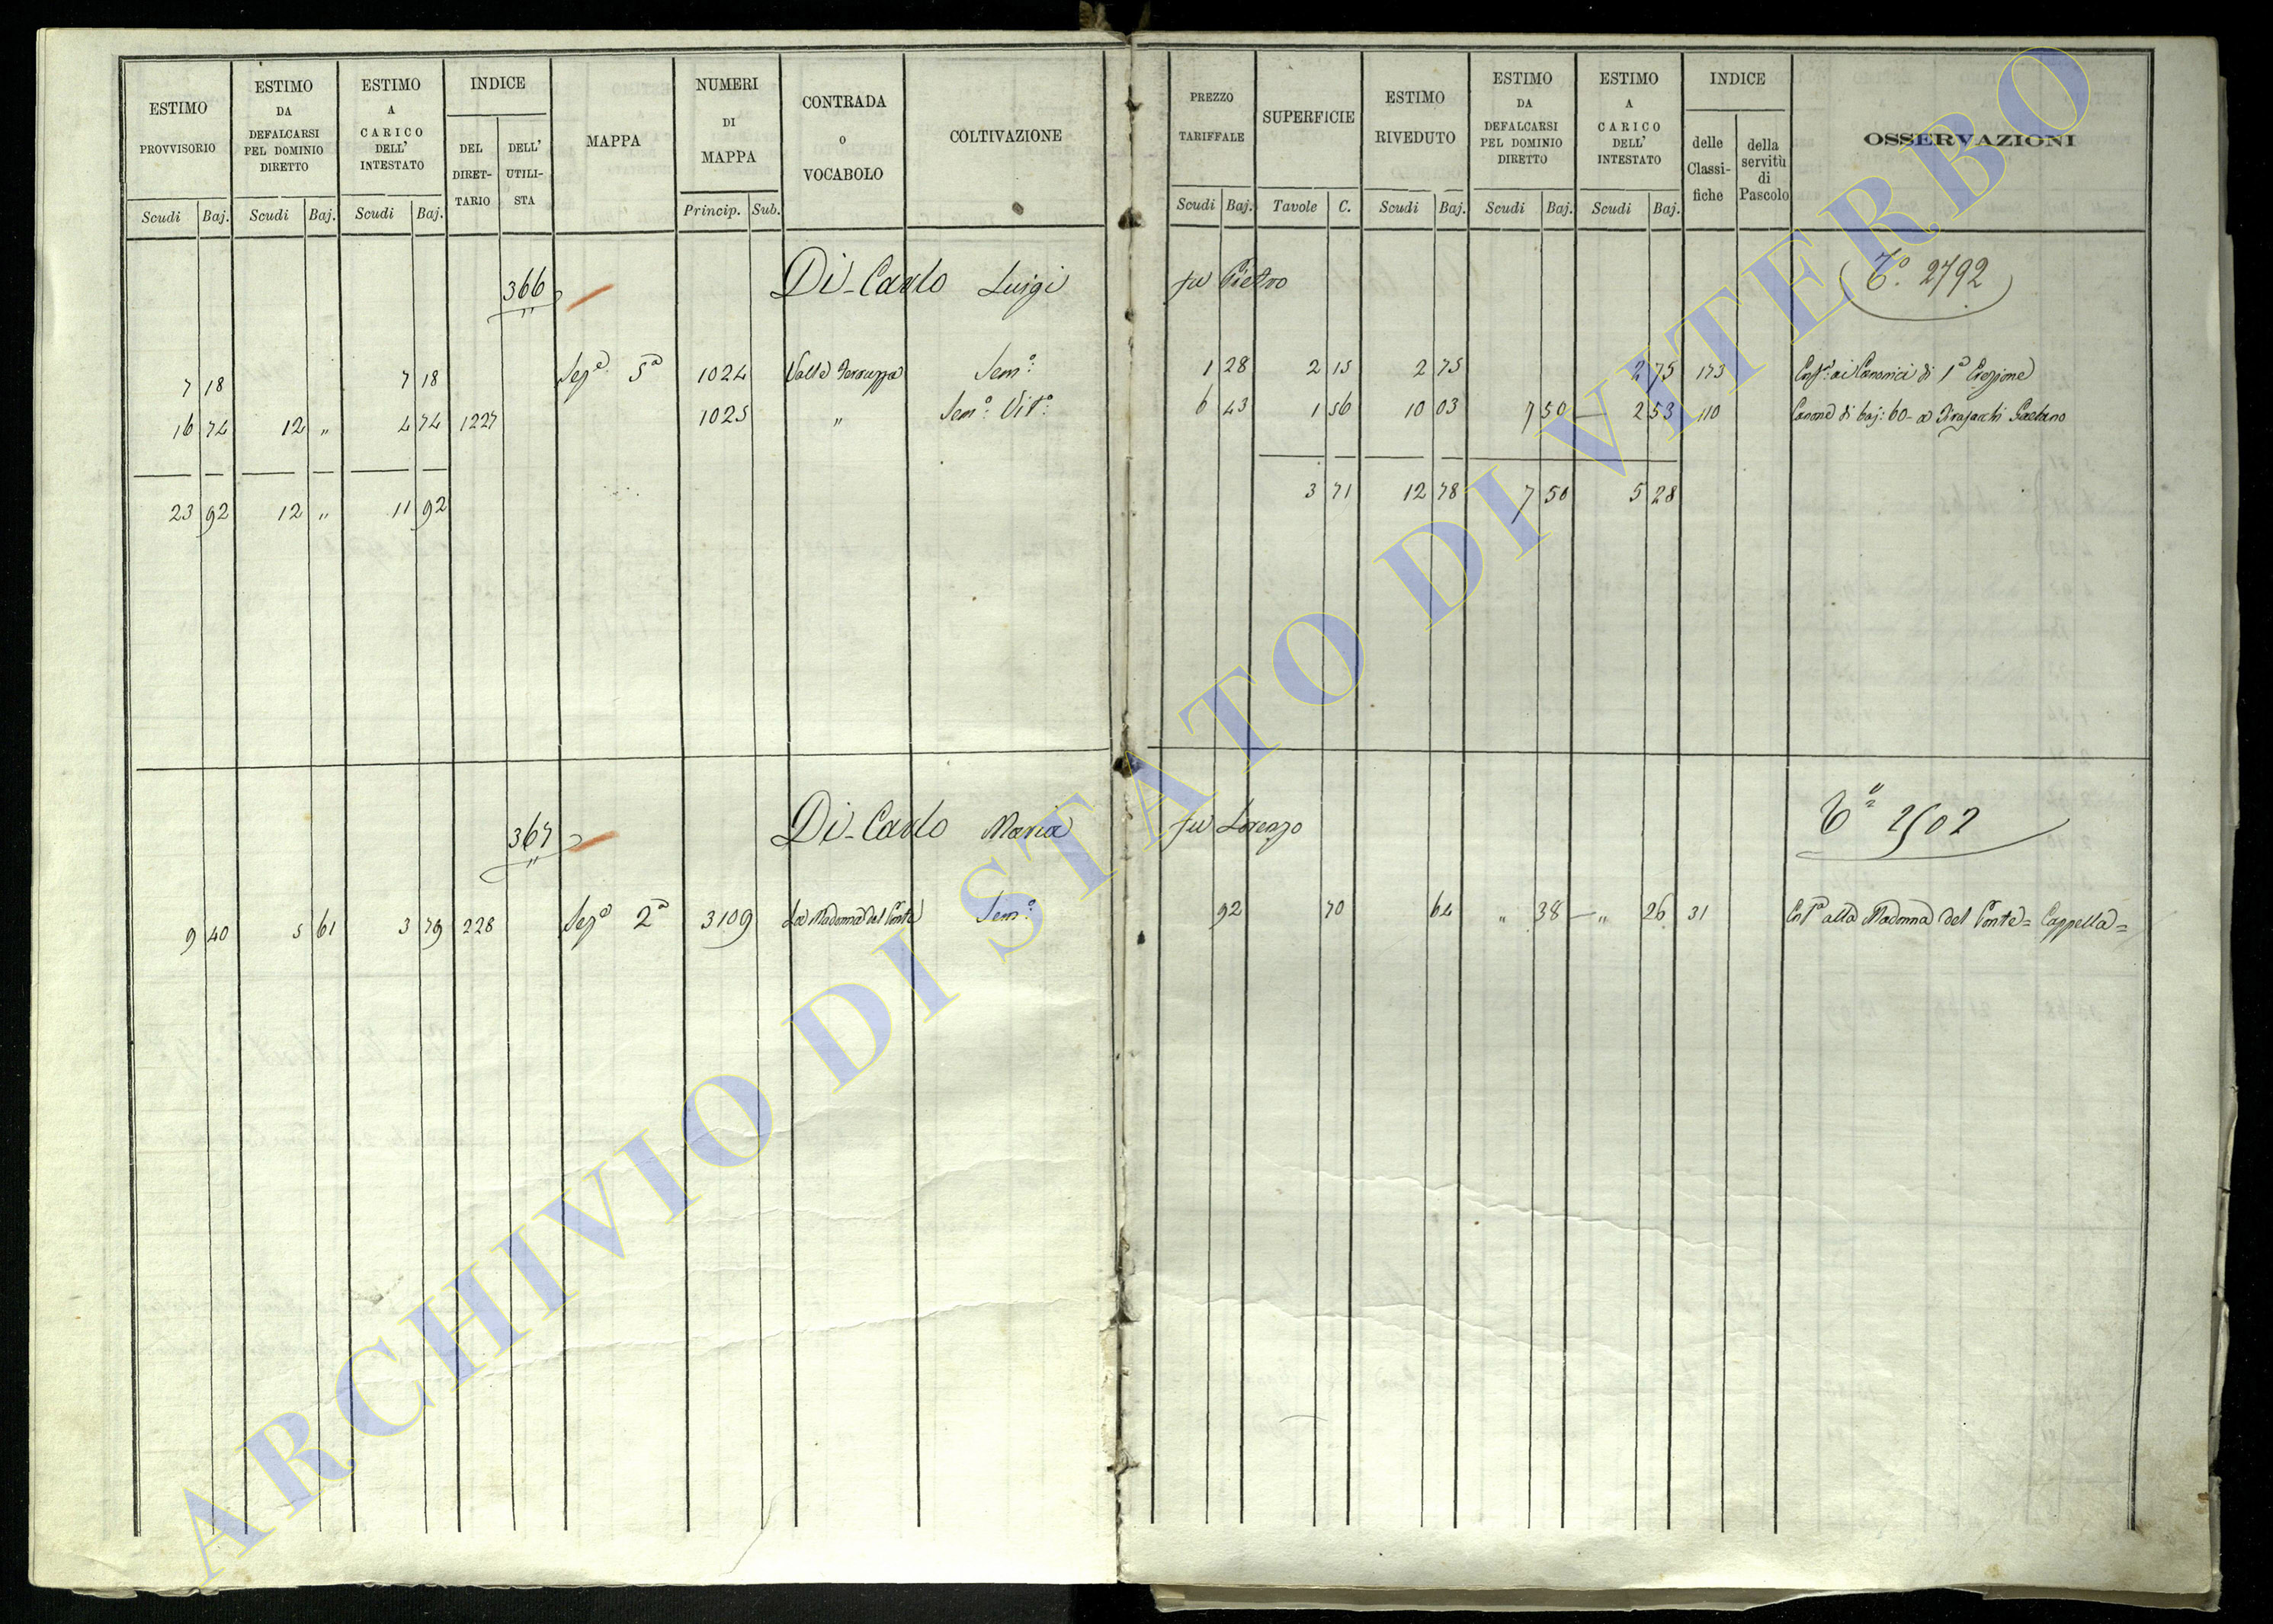 ESTIMO PROVVISORIO
Scudi Baj.
ESTIMO DA DEFALCARSI PEL DOMINIO DIRETTO
Scudi Baj.
ESTIMO A CARICO DELL' INTESTATO
Scudi Baj.
INDICE
DEL DIRET-TARIO
DELL' UTILI-STA
MAPPA
NUMERI DI MAPPA
Princip. Sub.
CONTRADA o VOCABOLO
COLTIVAZIONE
PREZZO TARIFFALE
Scudi Baj.
SUPERFICIE
Tavole C.
ESTIMO RIVEDUTO
Scudi Baj.
ESTIMO DA DEFALCARSI PEL DOMINIO DIRETTO
Scudi Baj.
ESTIMO A CARICO DELL' INTESTATO
Scudi Baj.
INDICE
delle Classi-fiche
della servitù di Pascolo
OSSERVAZIONI
366 Di-Carlo Luigi fu Pietro T.o 2792
7 18 7 18 Sez.e 5a 1024 Valle Sem.o 1 28 2 15 2 75 2 75 173 Enf.a ai Canonici di 1a Erezione
16 74 12 „ 4 74 1227 1025 „ Sem.o Vit.o 6 43 1 56 10 03 7 50 — 2 53 110 Canone di baj: 60 a Gaetano
23 92 12 „ 11 92 3 71 12 78 7 50 5 28
367 Di-Carlo Maria fu Lorenzo T.o 2502
9 40 5 61 3 79 228 Sez.e 2a 3109 La Madonna del Ponte Sem.o 92 70 64 „ 38 — „ 26 31 Enf.a alla Madonna del Ponte = Cappella =
ARCHIVIO DI STATO DI VITERBO